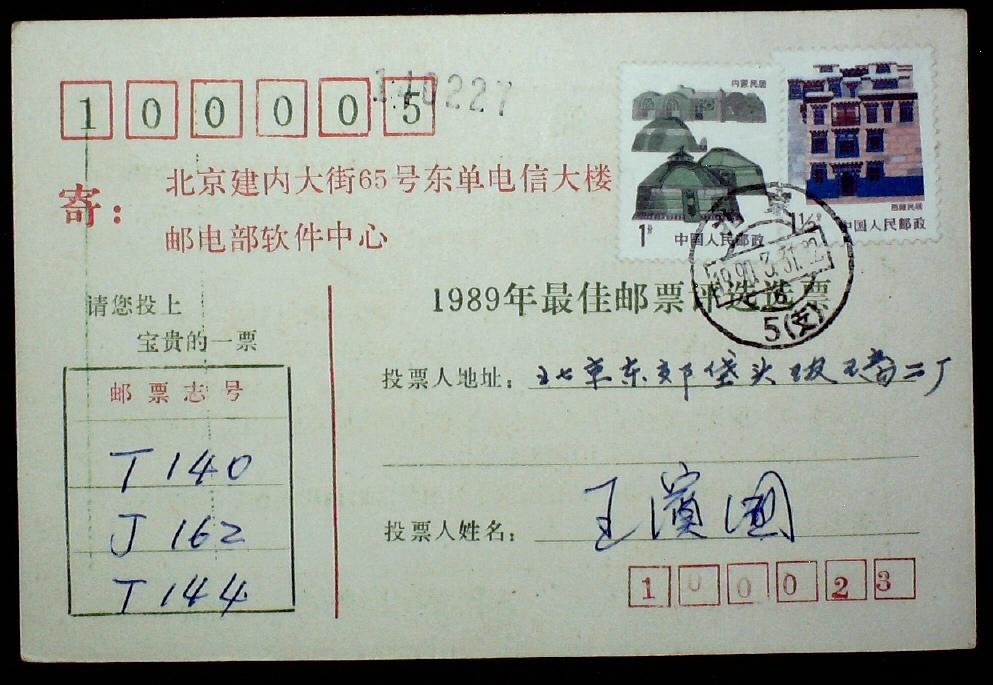 100005
140227
寄：
北京建内大街65号东单电信大楼
邮电部软件中心
内蒙民居
1分
中国人民邮政
西藏民居
1½分
中国人民邮政
北京
1990.3.31.22
5(支)
1989年最佳邮票评选选票
请您投上
宝贵的一票
邮票志号
T 140
J 162
T 144
投票人地址：北京东郊垡头玻璃二厂
投票人姓名：王滨国
100023